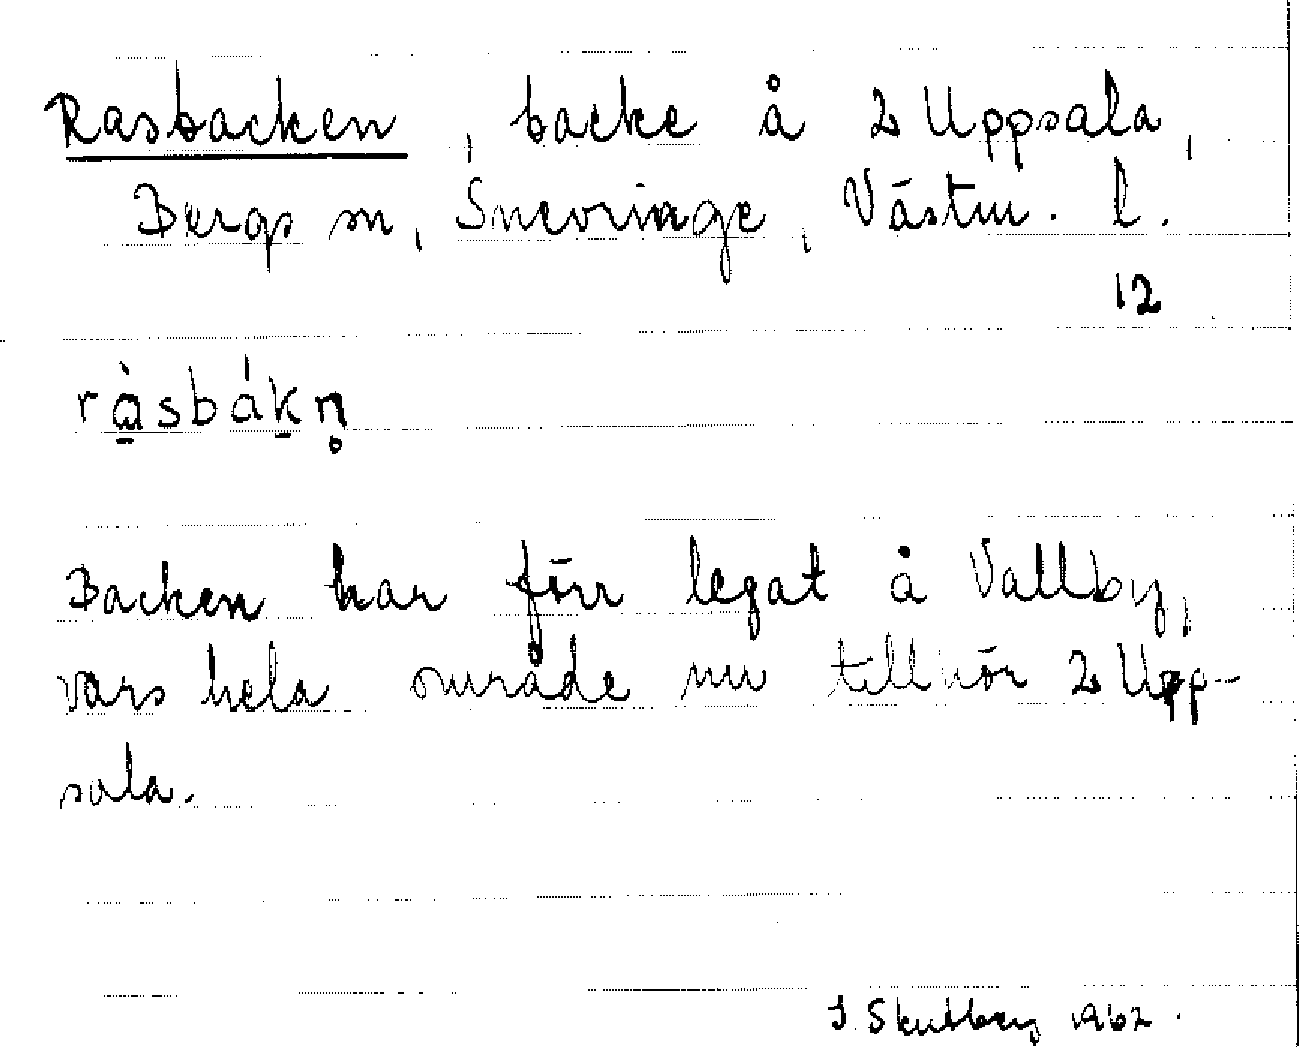 Rasbacken, backe å 2 Uppsala,
Bergs sn, Snevringe, Västm. l.
12
ràsbákn̥
Backen har förr legat å Vallby,
vars hela område nu tillhör 2 Upp-
sala.
1962.